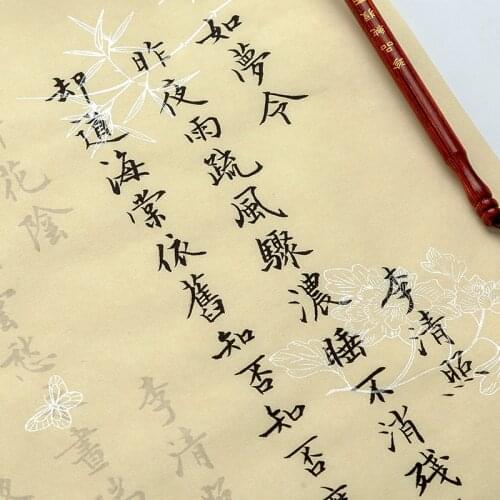 如夢令 李清照
昨夜雨疏風驟濃睡不消残
却道海棠依舊知否知否
花陰 李清照
雲愁 晝